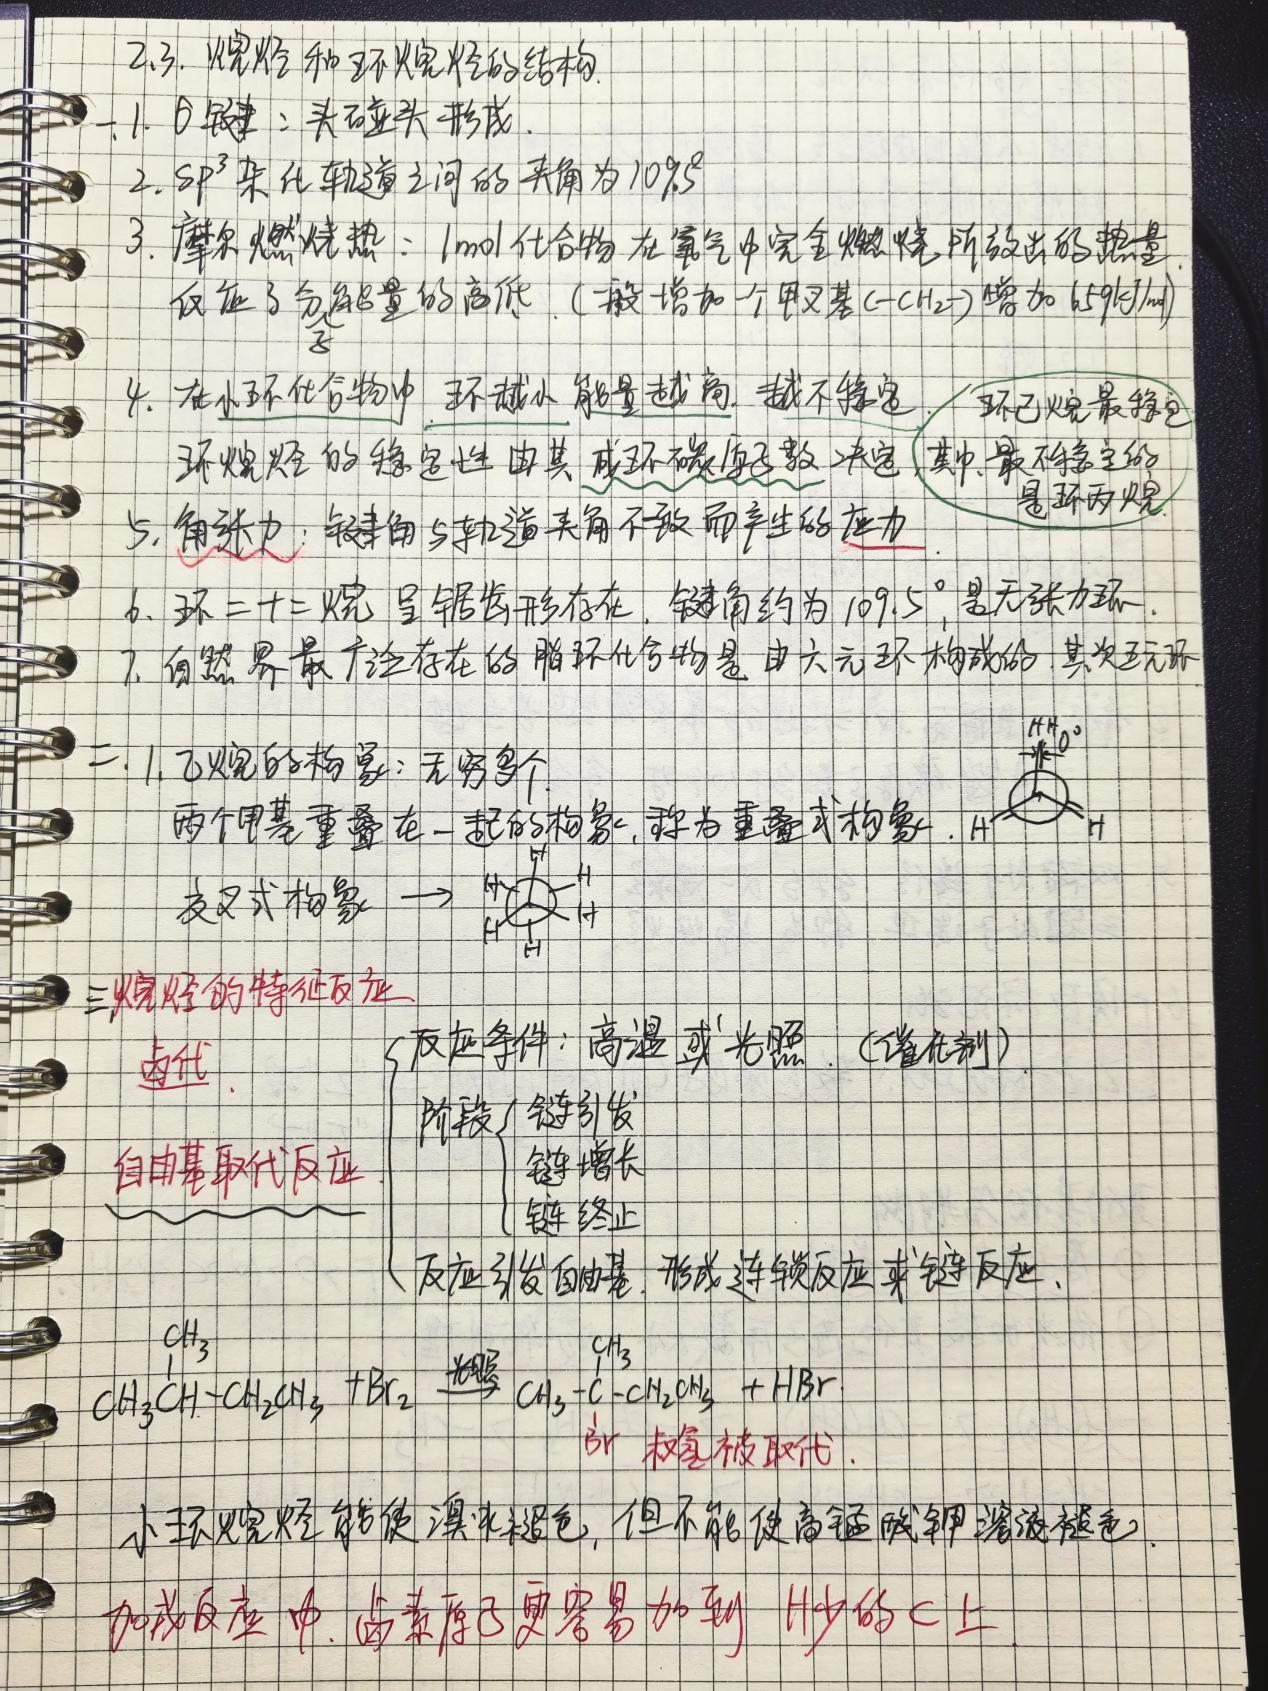 2.3. 烷烃和环烷烃的结构.
一.1. σ键：头碰头形成.
2. sp³杂化轨道之间的夹角为109.5°
3. 摩尔燃烧热：1mol化合物在氧气中完全燃烧所放出的热量.
仅应了分子能量的高低.（一般增加一个甲叉基(-CH2-)增加659kJ/mol）
4. 在小环化合物中 环越小能量越高.越不稳定.
环己烷最稳定
环烷烃的稳定性由其成环碳原子数决定.其中.最不稳定的
是环丙烷.
5. 角张力：键角与轨道夹角不致而产生的应力.
6. 环二十二烷呈锯齿形存在.键角约为109.5°,是无张力环.
7. 自然界最广泛存在的脂环化合物是由六元环构成的.其次五元环
二.1.乙烷的构象：无穷多个.
HH 0°
两个甲基重叠在一起的构象,称为重叠式构象. H H
交叉式构象 → H H H H H H
三.烷烃的特征反应
卤代. 反应条件：高温或光照.（催化剂）
阶段 链引发
链增长
自由基取代反应.
链终止
反应引发自由基.形成连锁反应或链反应.
CH3 CH3
CH3CH-CH2CH3 +Br2 光照 CH3-C-CH2CH3 +HBr.
Br 叔氢被取代.
小环烷烃能使溴水褪色,但不能使高锰酸钾溶液褪色.
加成反应中.卤素原子更容易加到H少的C上.